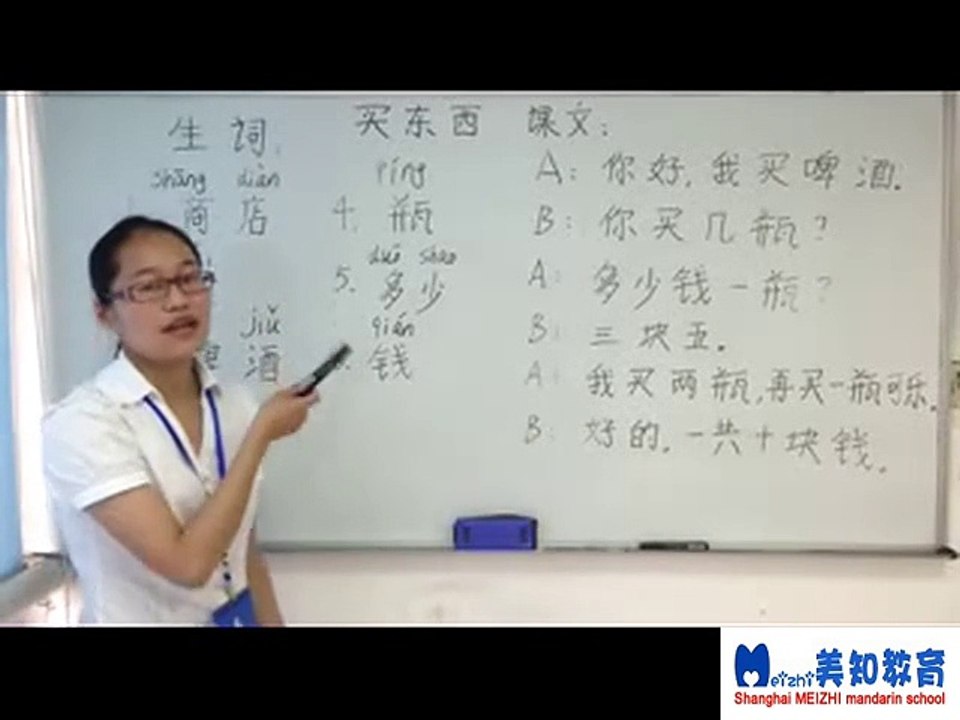 生词:
买东西
课文:
shāng diàn
商店
jiǔ
酒
píng
4. 瓶
duō shao
5. 多少
qián
钱
A: 你好,我买啤酒.
B: 你买几瓶?
A: 多少钱一瓶?
B: 三块五.
A: 我买两瓶,再买一瓶可乐.
B: 好的.一共十块钱.
Meizhi 美知教育
Shanghai MEIZHI mandarin school